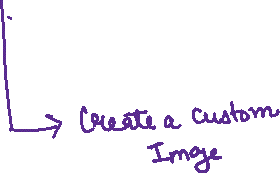 Create a Custom
Image